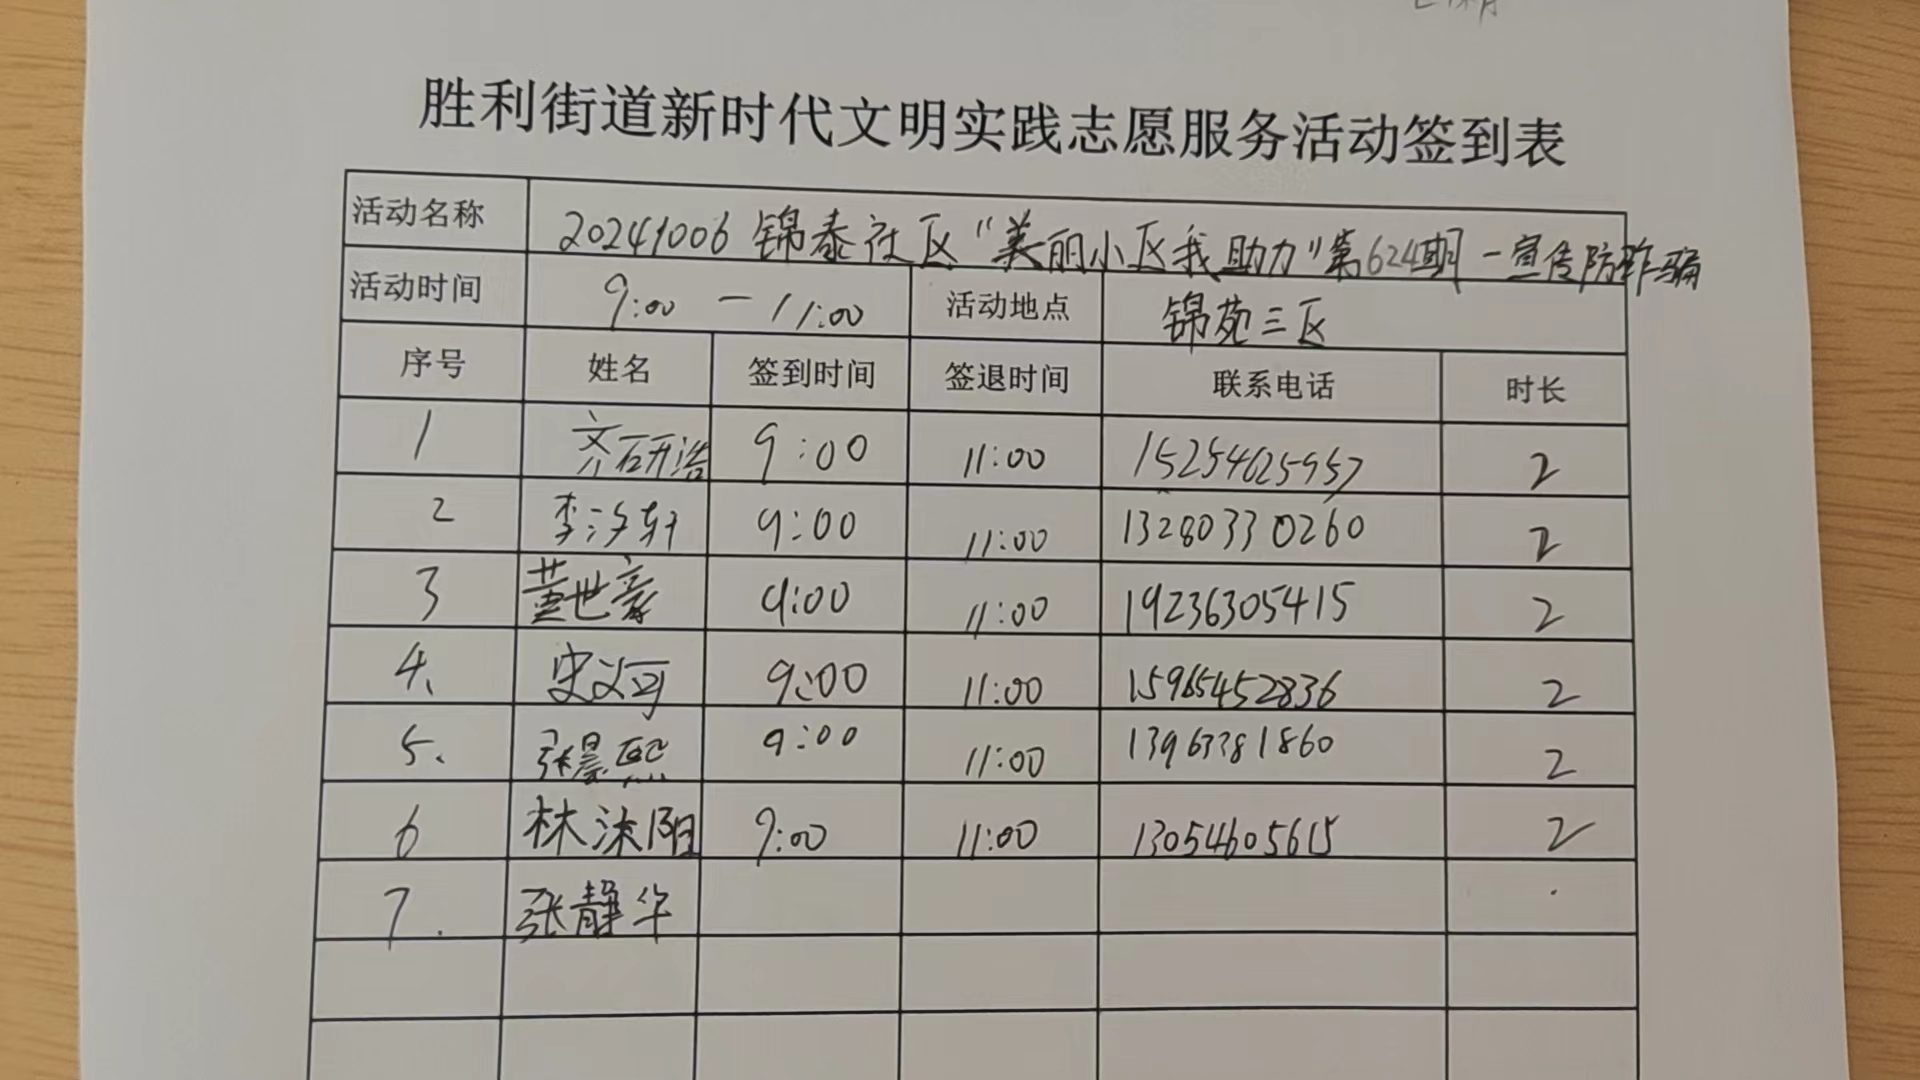 胜利街道新时代文明实践志愿服务活动签到表
活动名称 20241006 锦泰社区“美丽小区我助力”第624期-宣传防诈骗
活动时间 9:00 — 11:00 活动地点 锦苑三区
序号 姓名 签到时间 签退时间 联系电话 时长
1 齐研浩 9:00 11:00 15254625957 2
2 李汐轩 9:00 11:00 13280330260 2
3 董世豪 9:00 11:00 19236305415 2
4、 史义可 9:00 11:00 15965452836 2
5、 张景熙 9:00 11:00 13963381860 2
6 林沫阳 9:00 11:00 13054605615 2
7. 张静华